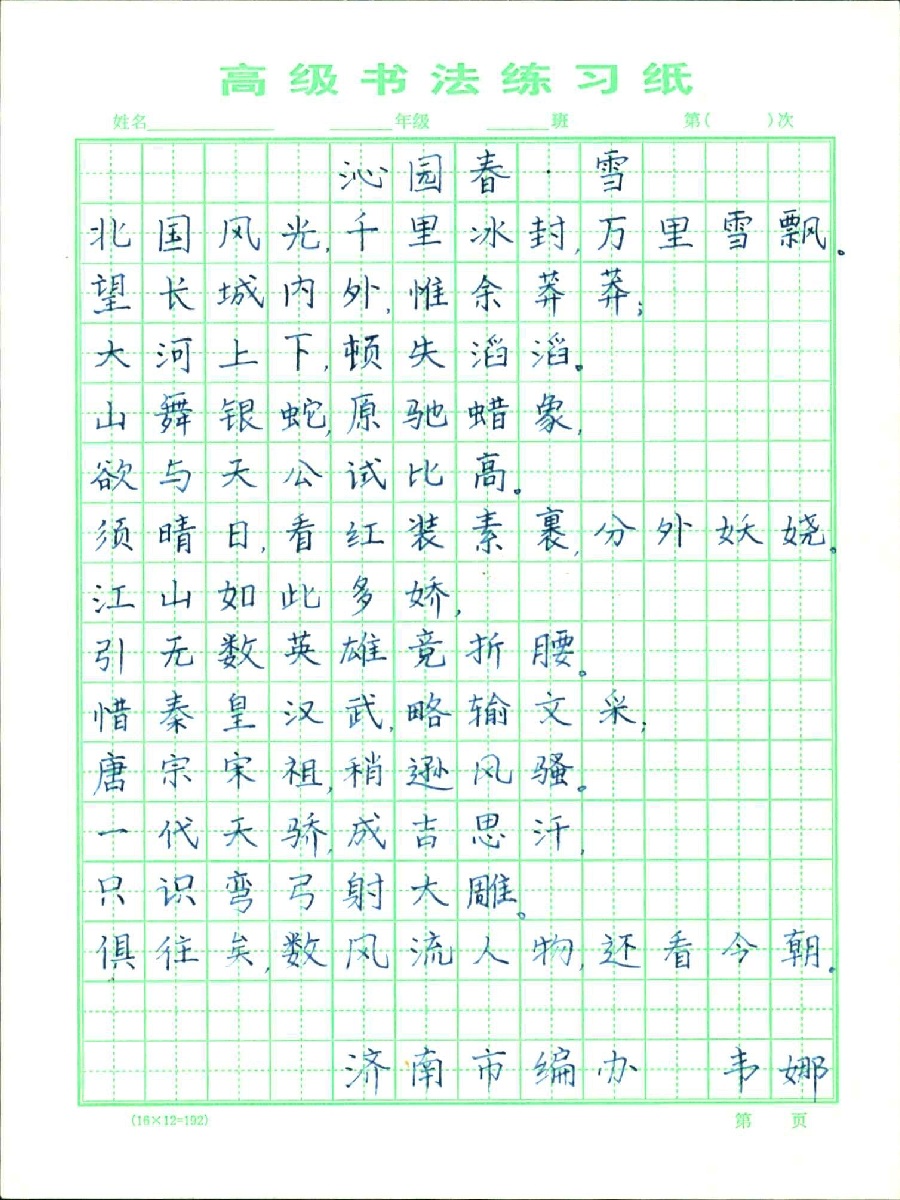 高级书法练习纸
姓名 年级 班 第( )次
沁园春·雪
北国风光,千里冰封,万里雪飘。
望长城内外,惟余莽莽;
大河上下,顿失滔滔。
山舞银蛇,原驰蜡象,
欲与天公试比高。
须晴日,看红装素裹,分外妖娆。
江山如此多娇,
引无数英雄竞折腰。
惜秦皇汉武,略输文采;
唐宗宋祖,稍逊风骚。
一代天骄,成吉思汗,
只识弯弓射大雕。
俱往矣,数风流人物,还看今朝。
济南市编办 韦娜
(16×12=192) 第 页